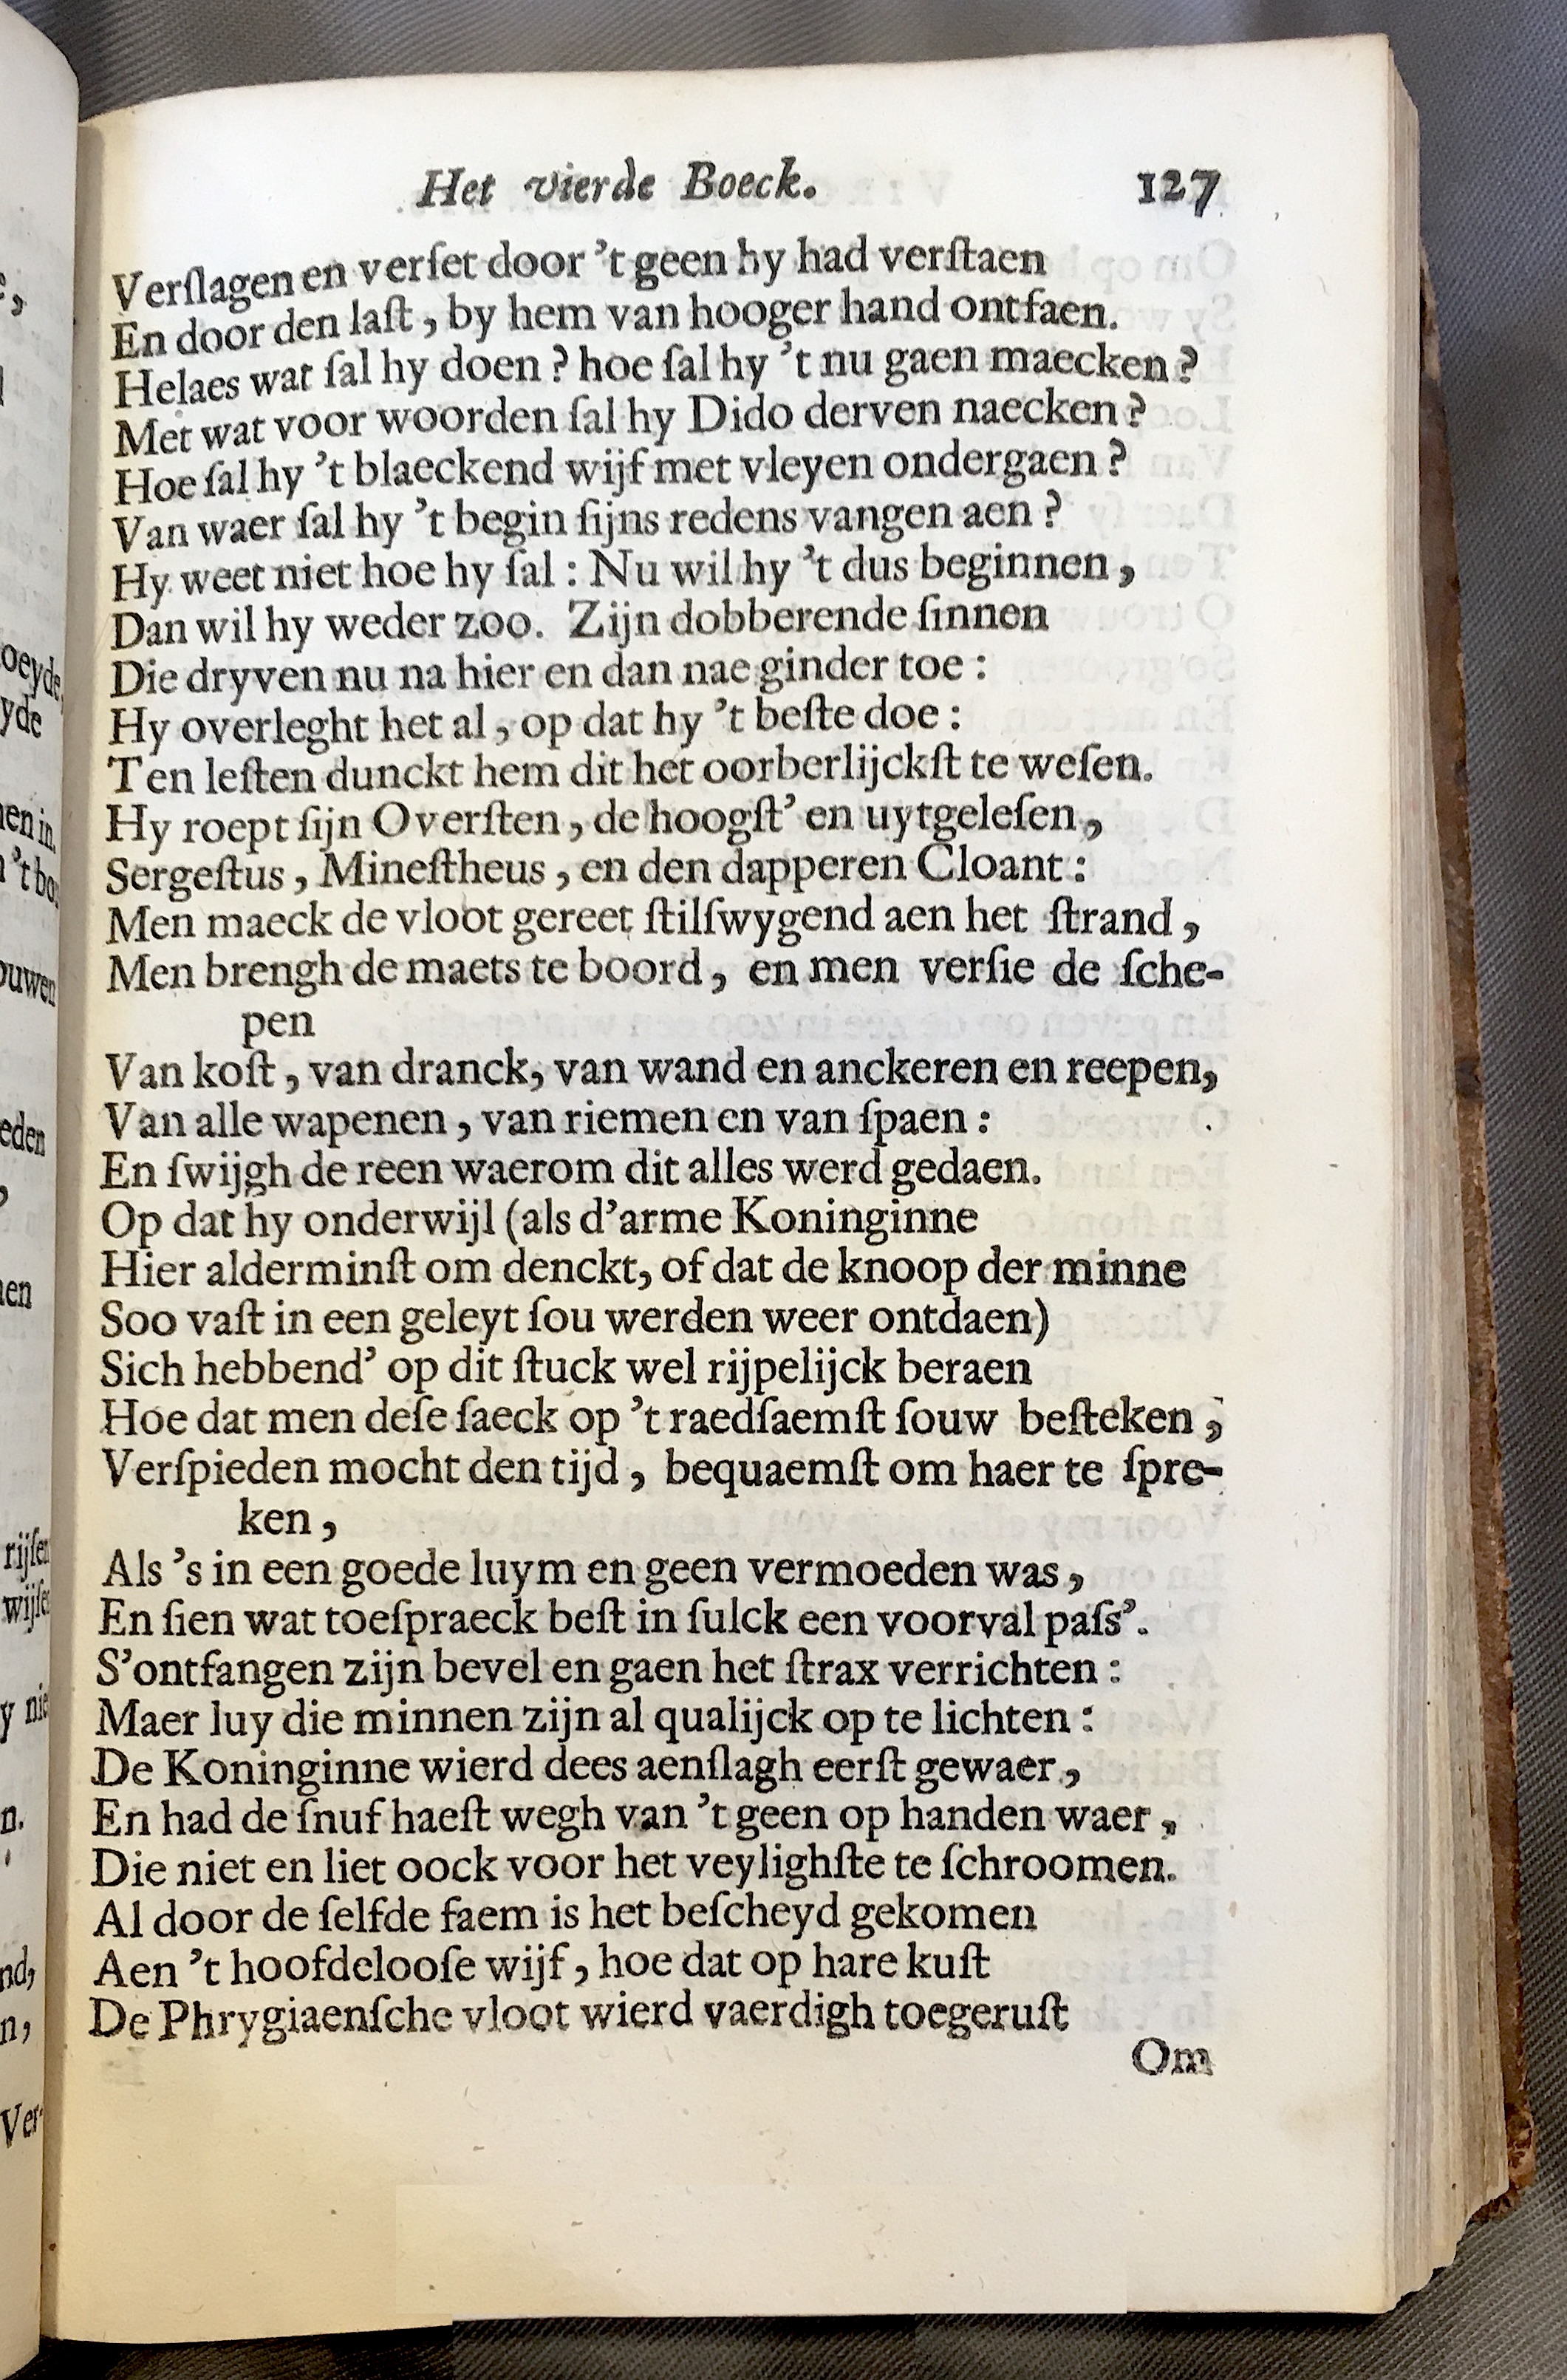 Het vierde Boeck. 127
Verſlagen en verſet door 't geen hy had verſtaen
En door den laſt, by hem van hooger hand ontfaen.
Helaes wat ſal hy doen? hoe ſal hy 't nu gaen maecken?
Met wat voor woorden ſal hy Dido derven naecken?
Hoe ſal hy 't blaeckend wijf met vleyen ondergaen?
Van waer ſal hy 't begin ſijns redens vangen aen?
Hy weet niet hoe hy ſal: Nu wil hy 't dus beginnen,
Dan wil hy weder zoo. Zijn dobberende ſinnen
Die dryven nu na hier en dan nae ginder toe:
Hy overleght het al, op dat hy 't beſte doe:
Ten leſten dunckt hem dit het oorberlijckſt te weſen.
Hy roept ſijn Overſten, de hoogſt' en uytgeleſen,
Sergeſtus, Mineſtheus, en den dapperen Cloant:
Men maeck de vloot gereet ſtilſwygend aen het ſtrand,
Men brengh de maets te boord, en men verſie de ſche-
pen
Van koſt, van dranck, van wand en anckeren en reepen,
Van alle wapenen, van riemen en van ſpaen:
En ſwijgh de reen waerom dit alles werd gedaen.
Op dat hy onderwijl (als d'arme Koninginne
Hier alderminſt om denckt, of dat de knoop der minne
Soo vaſt in een geleyt ſou werden weer ontdaen)
Sich hebbend' op dit ſtuck wel rijpelijck beraen
Hoe dat men deſe ſaeck op 't raedſaemſt ſouw beſteken,
Verſpieden mocht den tijd, bequaemſt om haer te ſpre-
ken,
Als 's in een goede luym en geen vermoeden was,
En ſien wat toeſpraeck beſt in ſulck een voorval paſs'.
S'ontfangen zijn bevel en gaen het ſtrax verrichten:
Maer luy die minnen zijn al qualijck op te lichten:
De Koninginne wierd dees aenſlagh eerſt gewaer,
En had de ſnuf haeſt wegh van 't geen op handen waer,
Die niet en liet oock voor het veylighſte te ſchroomen.
Al door de ſelfde faem is het beſcheyd gekomen
Aen 't hoofdelooſe wijf, hoe dat op hare kuſt
De Phrygiaenſche vloot wierd vaerdigh toegeruſt
Om